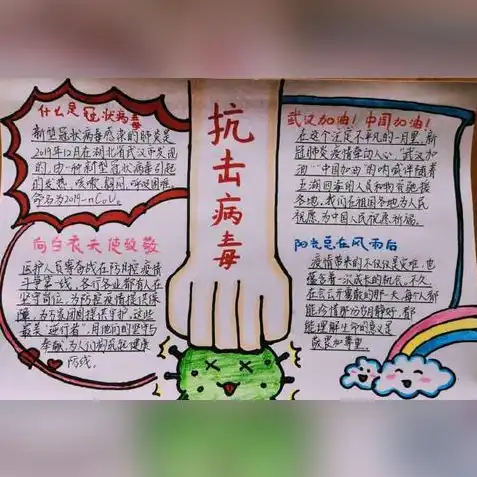 什么是冠状病毒
新型冠状病毒感染的肺炎是
2019年12月在湖北省武汉市发现
的,由一种新型冠状病毒引起
的发热、咳嗽、胸闷、呼吸困难。
命名为2019-nCoV。
向白衣天使致敬
医护人员奋战在防控疫情
斗争第一线,各行各业都有人在
坚守岗位,为防控疫情提供保
障,为万家团圆提供守护,这些
最美"逆行者",用他们的坚守与
奉献,为人们制成起健康
防线。
抗击病毒
武汉加油!中国加油!
在这个注定不平凡的一月里,新
冠肺炎疫情牵动人心。"武汉加
油""中国加油"的呐喊伴随着
五湖四海的人员和物资驰援
各地,我们在祖国各地为人民
祝愿为中国人民祝愿祈福。
阳光总在风雨后
疫情带来的不仅仅是灾难,也
蕴含着一次成长的机会。不久
在会云开雾散的那一天,每个人都
能懂得那份岁月静好,都
能理解生命的意义是
敬畏和尊重。